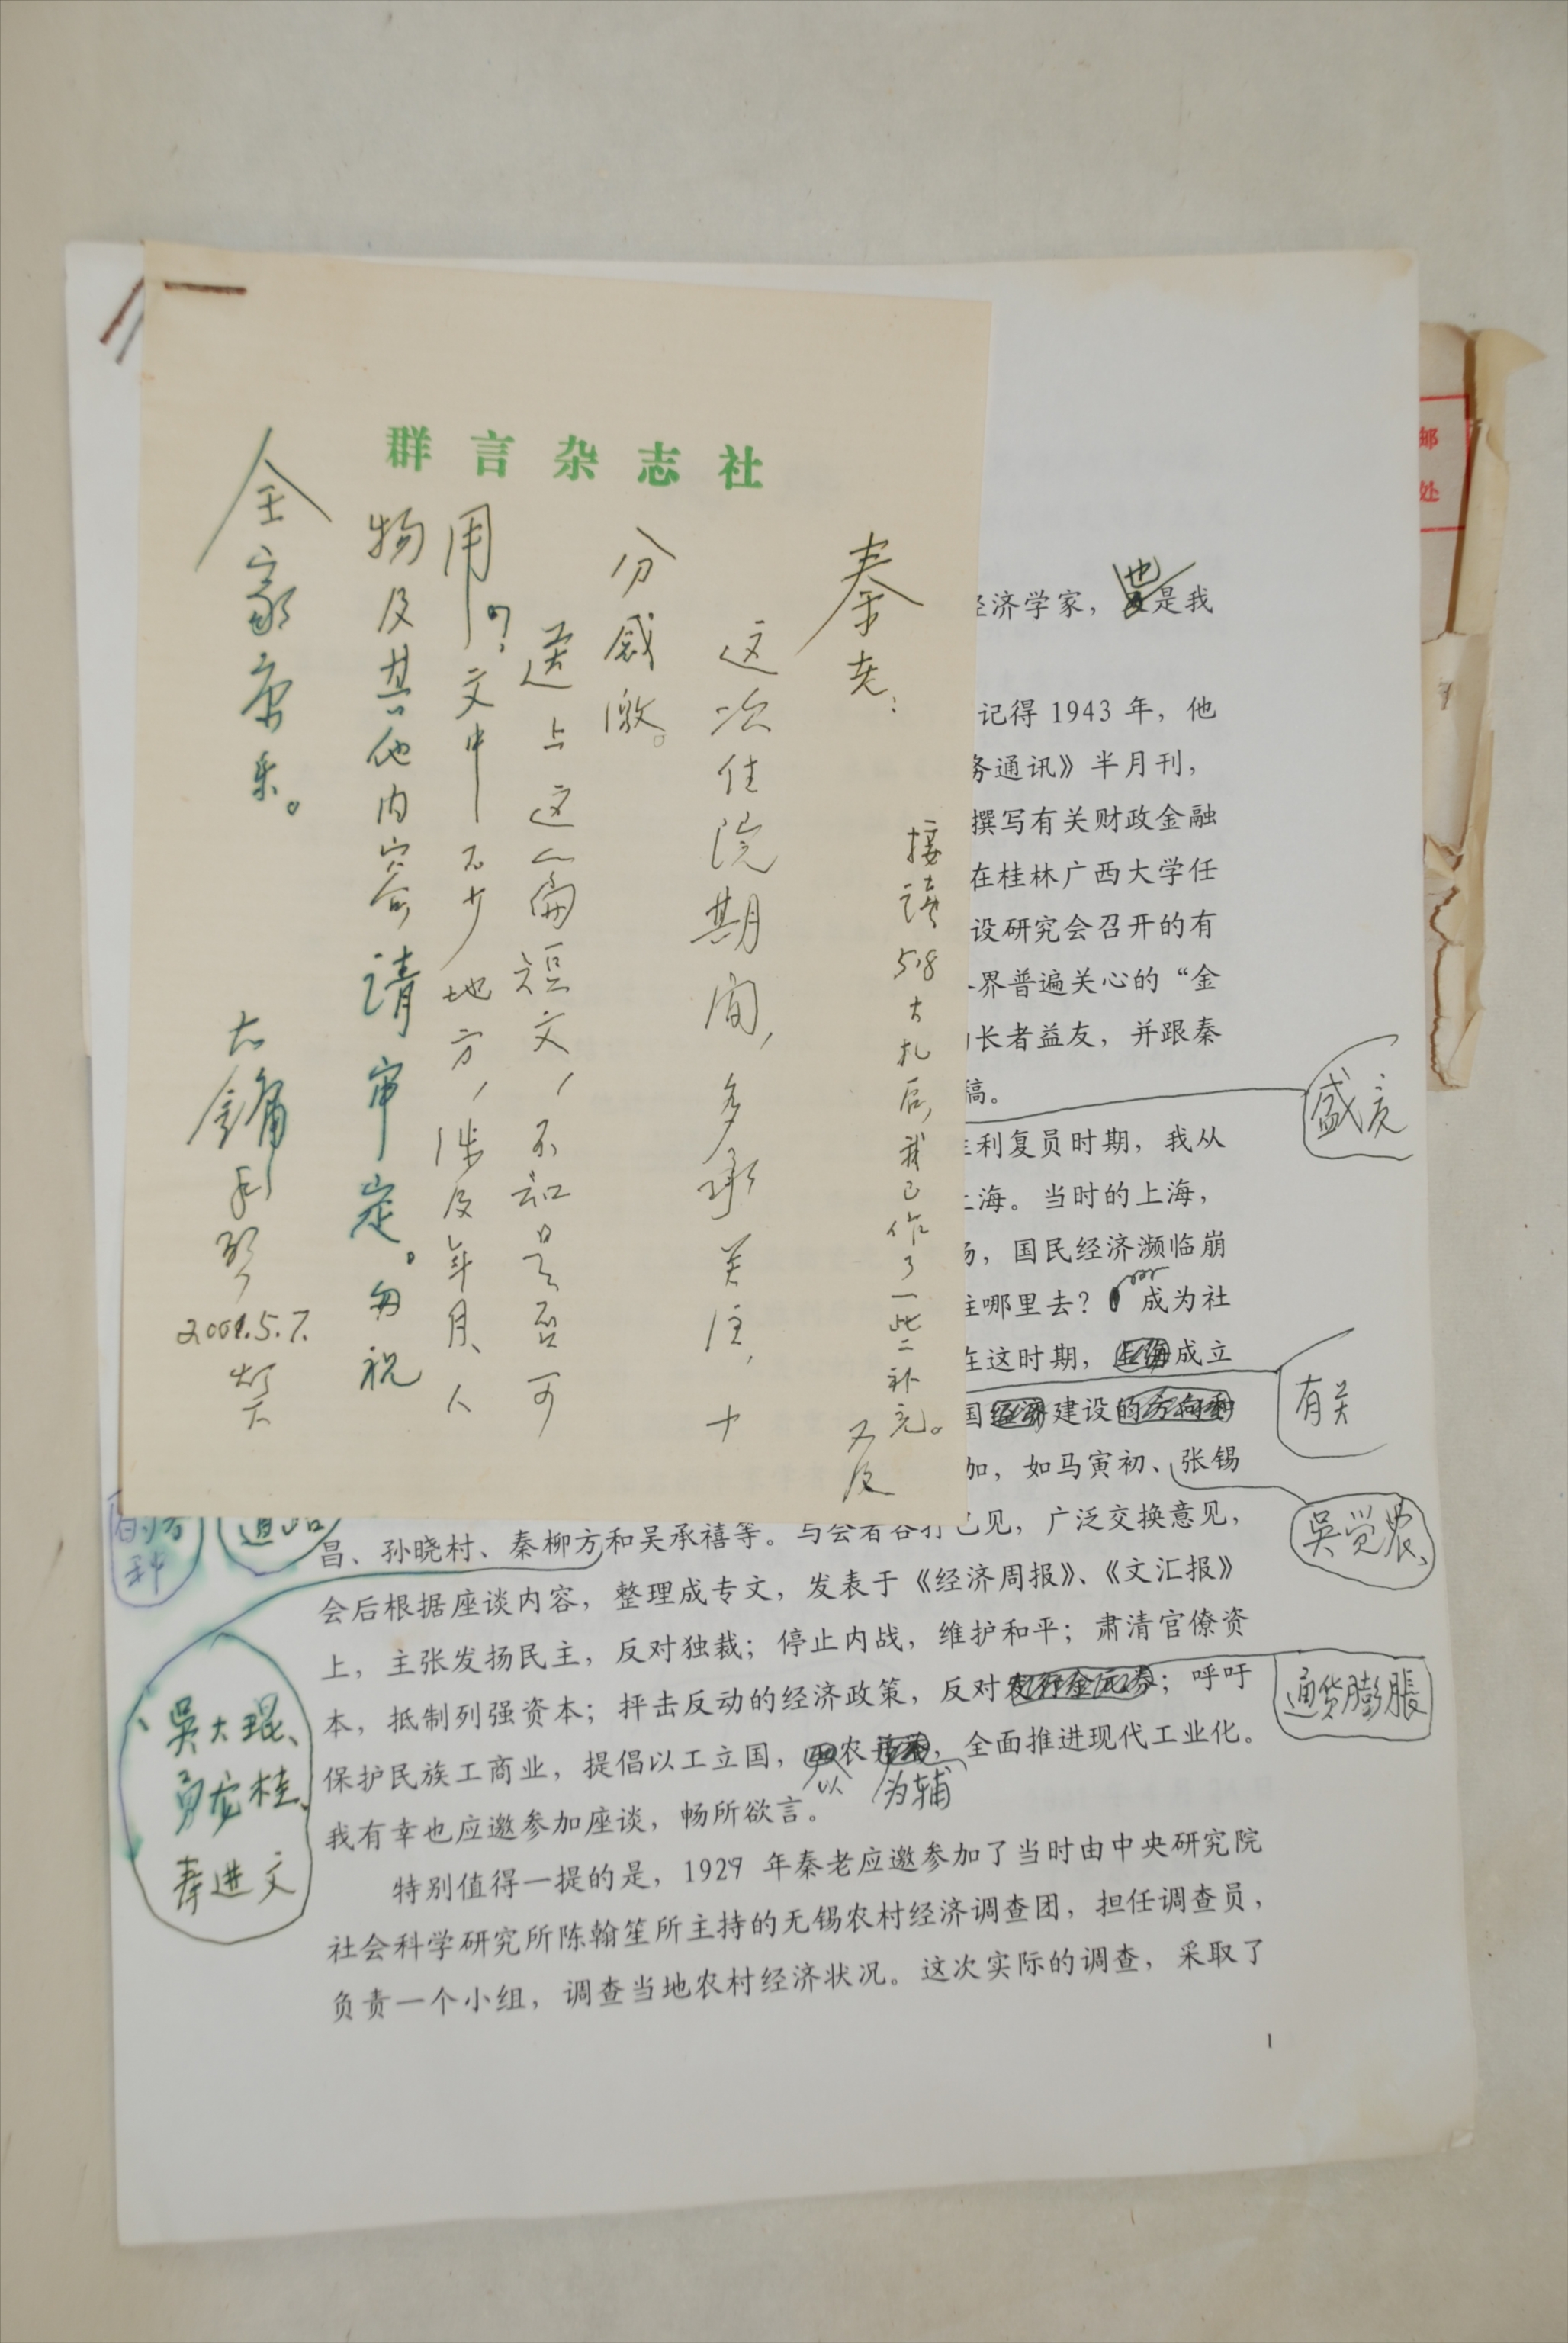 群言杂志社
秦老：
这次住院期间，多承关注，十
分感激。
送上这篇短文，不知是否可
用？文中不少地方，涉及年月、人
物及其他内容请审定。匆祝
全家康乐。
2001.5.7.
接读5.8大札后，我已作了一些补充。
又及
经济学家，也是我
记得 1943 年，他
务通讯》半月刊，
撰写有关财政金融
在桂林广西大学任
设研究会召开的有
界普遍关心的“金
长者益友，并跟秦
稿。
利复员时期，我从
上海。当时的上海，
场，国民经济濒临崩
往哪里去？成为社
在这时期，上海成立
国经济建设的
加，如马寅初、张锡
昌、孙晓村、秦柳方和吴承禧等。与会者各抒己见，广泛交换意见，
会后根据座谈内容，整理成专文，发表于《经济周报》、《文汇报》
上，主张发扬民主，反对独裁；停止内战，维护和平；肃清官僚资
本，抵制列强资本；抨击反动的经济政策，反对发行金元券；呼吁
保护民族工商业，提倡以工立国，农，全面推进现代工业化。
以 为辅
我有幸也应邀参加座谈，畅所欲言。
特别值得一提的是，1929 年秦老应邀参加了当时由中央研究院
社会科学研究所陈翰笙所主持的无锡农村经济调查团，担任调查员，
负责一个小组，调查当地农村经济状况。这次实际的调查，采取了
1
有关
吴觉农、
通货膨胀
吴大琨、
勇龙桂、
寿进文
邮
处